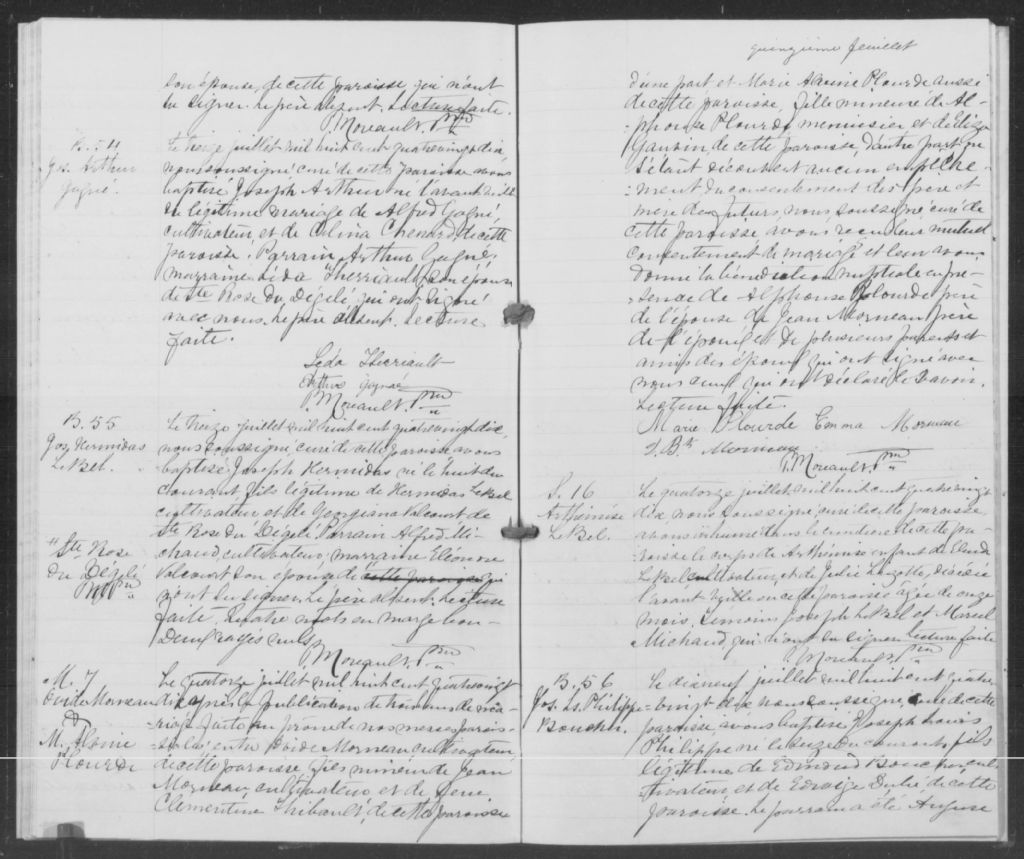 son épouse, de cette paroisse qui n'ont
su signer. Le père absent. Lecture faite.
P. Moreault. Ptre
B. 54
Jos. Arthur
Gagné.
Le treize juillet mil huit cent quatrevingt dix
nous soussigné, curé de cette paroisse avons
baptisé Joseph Arthur né l'avant veille
du légitime mariage de Alfred Gagné,
cultivateur, et de Chenard, de cette
paroisse. Parrain Arthur Gagné,
marraine Léda Therriault, son épouse
de Ste Rose du Dégelé, qui ont signé
avec nous. Le père absent. Lecture
faite.
Léda Therriault
Arthur gagné
P. Moreault. Ptre
B. 55
Jos Hermidas
LeBel.
Le treize juillet mil huit cent quatrevingt dix,
nous soussigné, curé de cette paroisse avons
baptisé Joseph Hermidas né le huit du
courant, fils légitime de Hermidas LeBel
cultivateur et de Georgiana Valcourt de
Ste Rose du Dégelé. Parrain Alfred Mi-
chaud, cultivateur, marraine Eléonore
Valcourt son épouse de cette paroisse qui
n'ont su signer. Le père absent. Lecture
faite. Quatre mots en marge bon
Deux rayés nuls
P. Moreault. Ptre
" Ste Rose
du Dégelé
M. 7
Ovide Morneau
&
M. Alvine
Plourde
Le quatorze juillet mil huit cent quatrevingt
dix, après la publication de trois bans de ma-
riage faite au prône de nos messes parois-
siales entre Ovide Morneau cultivateur
de cette paroisse, fils mineur de Jean
Morneau, cultivateur et de feue
Clémentine Thibault, de cette paroisse
quinzième feuillet
d'une part, et Marie Plourde aussi
de cette paroisse, fille mineure de Al-
phonse Plourde menuisier et de
Gauvin, de cette paroisse, d'autre part; ne
s'étant découvert aucun empêche-
ment du consentement des père et
mère des futurs, nous soussigné curé de
cette paroisse avons reçu leur mutuel
consentement de mariage et leur avons
donné la bénédiction nuptiale en pré-
sence de Alphonse Plourde père
de l'épouse de Jean Morneau père
de l'époux et de plusieurs parents et
amis des époux qui ont signé avec
nous ceux qui ont déclaré le savoir.
Lecture faite.
Marie Plourde Emma Morneau
J. Bte Morneau
P. Moreault. Ptre
S. 16
Arthémise
LeBel.
Le quatorze juillet mil huit cent quatrevingt
dix, nous soussigné curé de cette paroisse,
avons inhumé dans le cimetière de cette pa-
roisse le corps de Arthémise enfant de
LeBel cultivateur, et de Julie Lizotte, décédée
l'avant veille en cette paroisse âgée de onze
mois. Témoins Joseph LeBel et Marcel
Michaud, qui n'ont su signer. Lecture faite
P. Moreault. Ptre
B. 56
Jos. Ls. Philippe
Boucher.
Le dixneuf juillet mil huit cent quatre
vingt dix nous soussigné, curé de cette
paroisse, avons baptisé Joseph Louis
Philippe né le seize du courant, fils
légitime de Edmond Boucher, cul-
tivateur, et de Edwige Dubé de cette
paroisse. Le parrain a été